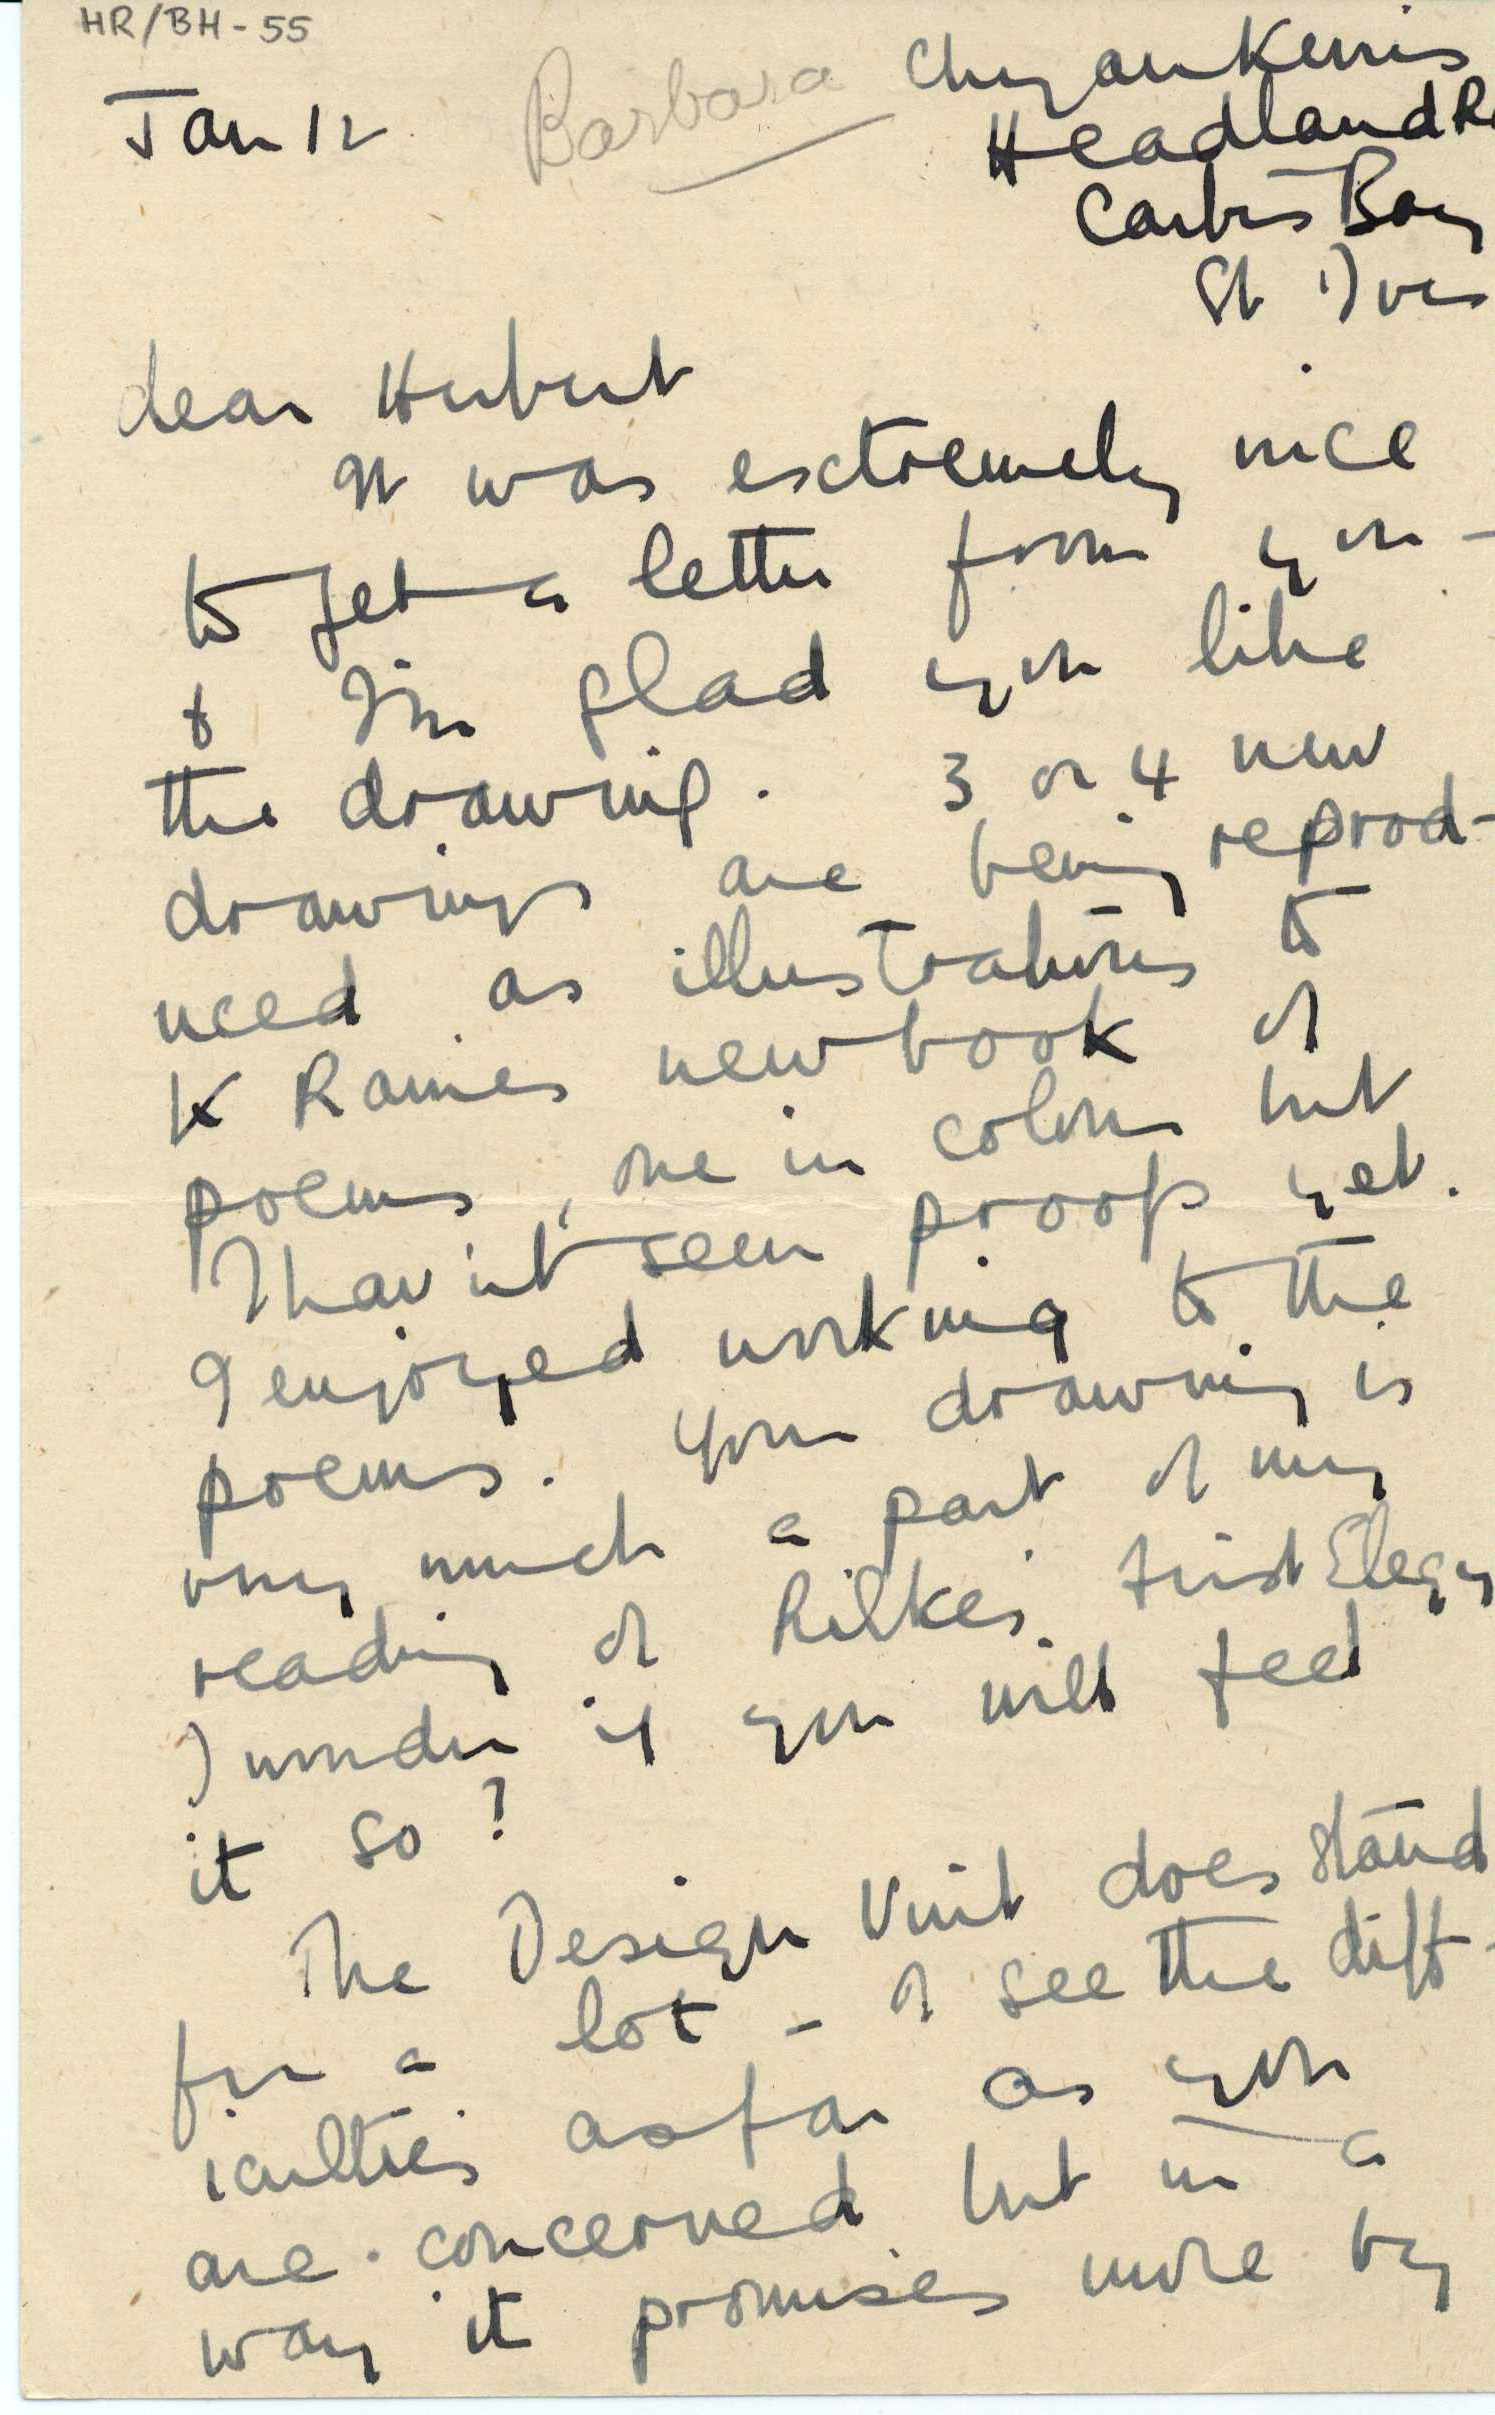 HR/BH - 55
Jan 12
Barbara
Chy an Kerris
Headland R
Carbis Bay
St Ives
dear Herbert
It was extremely nice
to get a letter from you -
& I'm glad you like
the drawing. 3 or 4 new
drawings are being reprod-
uced as illustrations to
K Raines new book of
poems, one in colour but
I hav'nt seen proofs yet.
I enjoyed working to the
poems. Your drawing is
very much a part of my
reading of Rilkes first Elegy
I wonder if you will feel
it so?
The Design Unit does stand
for a lot - I see the diff-
iculties as far as you
are concerned but in a
way it promises more by